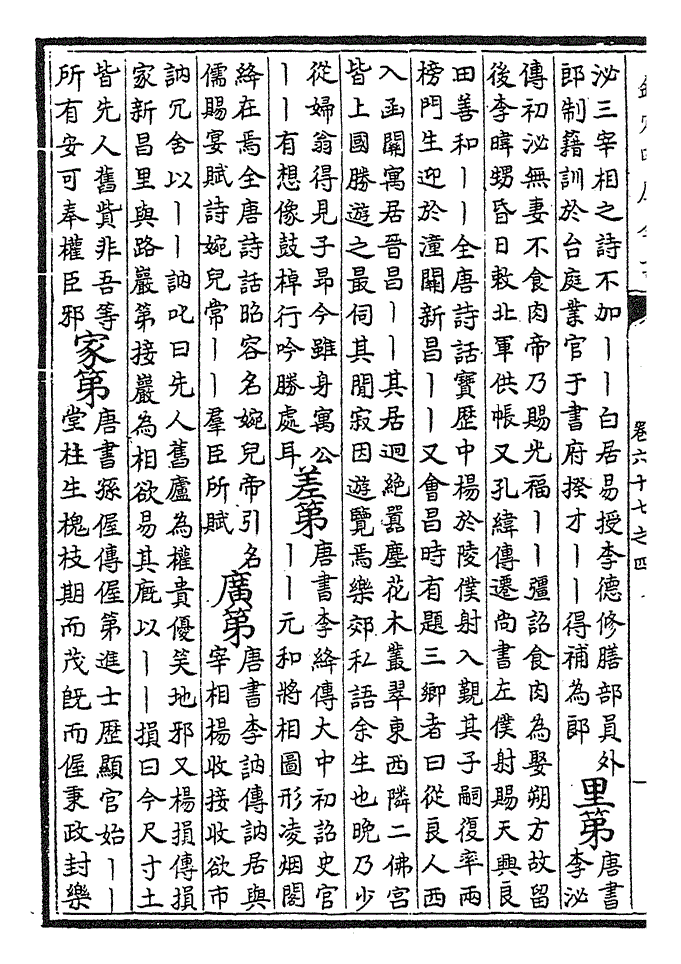 卷六十七之四
一
泌三宰相之詩不加丨丨白居易授李德修膳部員外
郎制籍訓於台庭業官于書府揆才丨丨得補為郎
里第
唐書
李泌
傳初泌無妻不食肉帝乃賜光福丨丨彊詔食肉為娶朔方故留
後李暐甥昏日敕北軍供帳又孔緯傳遷尚書左僕射賜天興良
田善和丨丨全唐詩話寶歷中楊於陵僕射入覲其子嗣復率兩
榜門生迎於潼關新昌丨丨又會昌時有題三鄉者曰從良人西
入函關寓居晉昌丨丨其居迥絕囂塵花木叢翠東西隣二佛宮
皆上國勝遊之最伺其閒寂因遊覽焉樂郊私語余生也晚乃少
從婦翁得見子昂今雖身寓公
丨丨有想像鼓棹行吟勝處耳
差第
唐書李絳傳大中初詔史官
丨丨元和將相圖形凌烟閣
絳在焉全唐詩話昭容名婉兒帝引名
儒賜宴賦詩婉兒常丨丨羣臣所賦
廣第
唐書李訥傳訥居與
宰相楊收接收欲市
訥冗舍以丨丨訥叱曰先人舊廬為權貴優笑地邪又楊損傳損
家新昌里與路巖第接巖為相欲易其廐以丨丨損曰今尺寸土
皆先人舊貲非吾等
所有安可奉權臣邪
家第
唐書孫偓傳偓第進士歷顯官始丨丨
堂柱生槐枝期而茂旣而偓秉政封樂